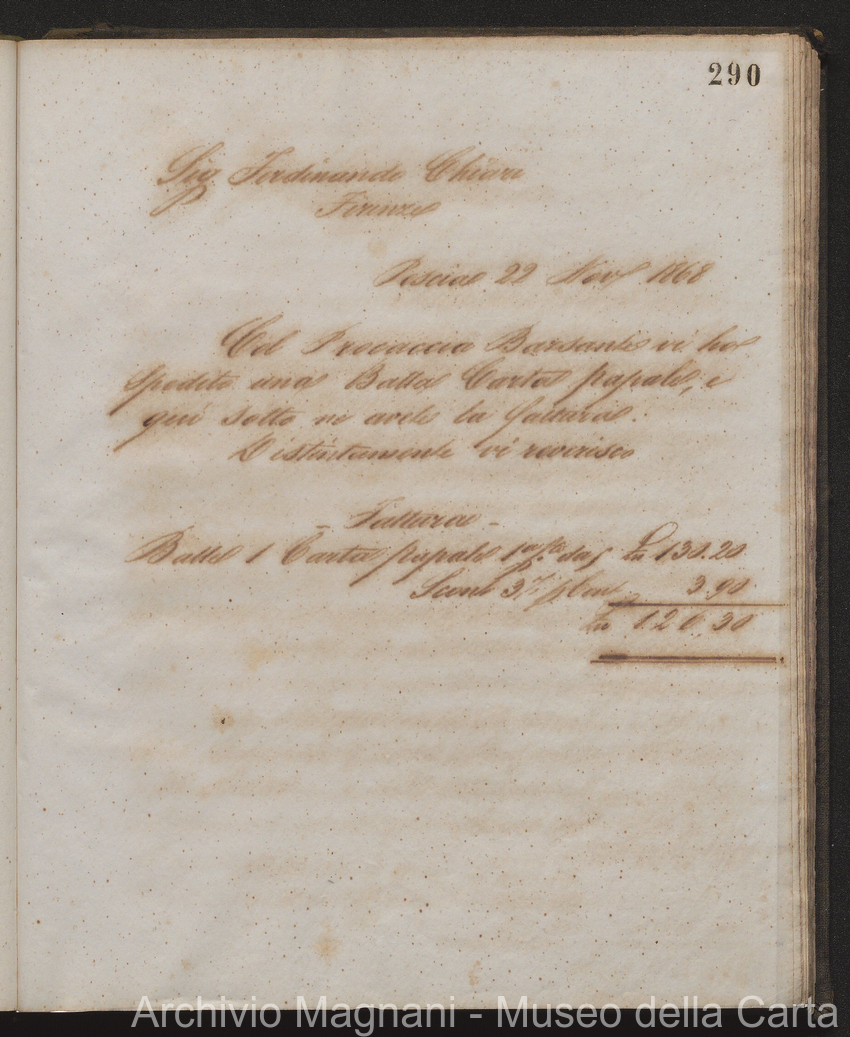 290
Sig. Ferdinando Chiari
Firenze
Pescia 22 Nov 1868
Col Procaccia Barsanti vi ho
spedito una Balla Carta papale, e
qui sotto ne avete la fattura.
Distintamente vi riverisco
- Fattura -
Balla 1 Carta papale 1a £n 130.20
Sconto 3 % 3.90
£n 126.30
Archivio Magnani - Museo della Carta